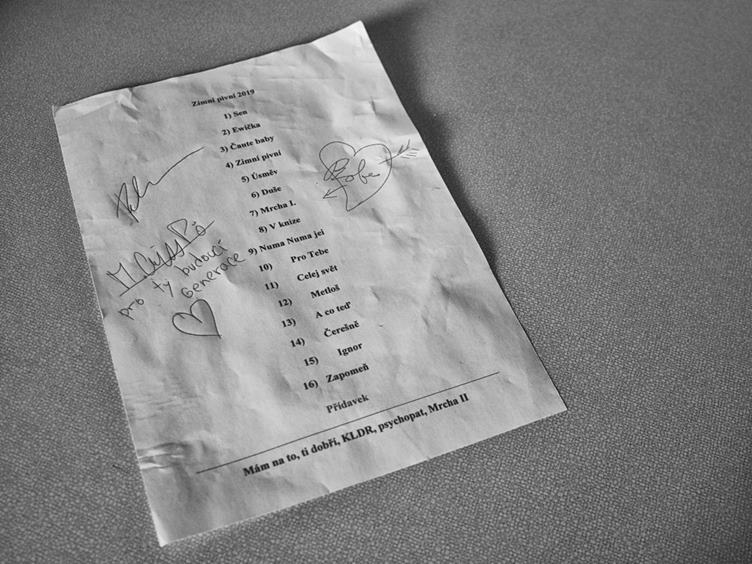 Zimní pivní 2019
1) Sen
2) Ewička
3) Čaute baby
4) Zimní pivní
5) Úsměv
6) Duše
7) Mrcha I.
8) V knize
9) Numa Numa jei
10) Pro Tebe
11) Celej svět
12) Metloš
13) A co teď
14) Čerešně
15) Ignor
16) Zapomeň
Přídavek
Mám na to, ti dobří, KLDR, psychopat, Mrcha II
pro ty budoucí
Generace